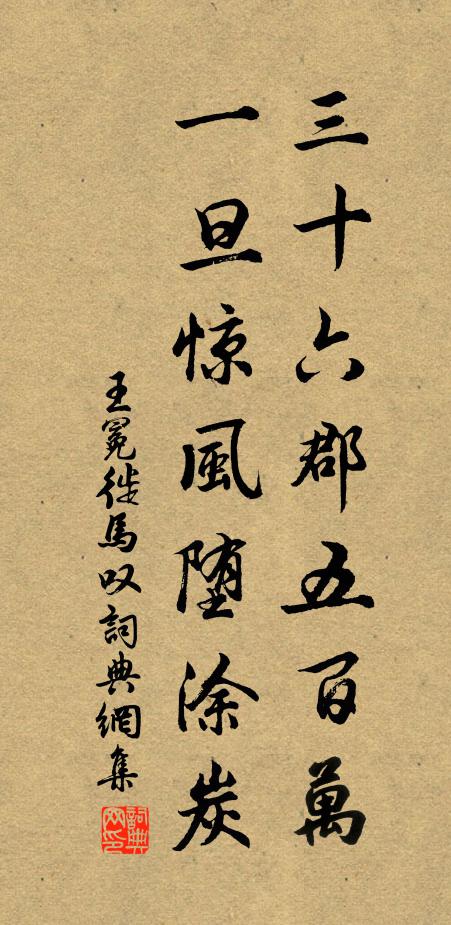 三十六郡五百萬
一旦惊風堕涂炭
王冕徙馬叹詞典網集
詞典网印